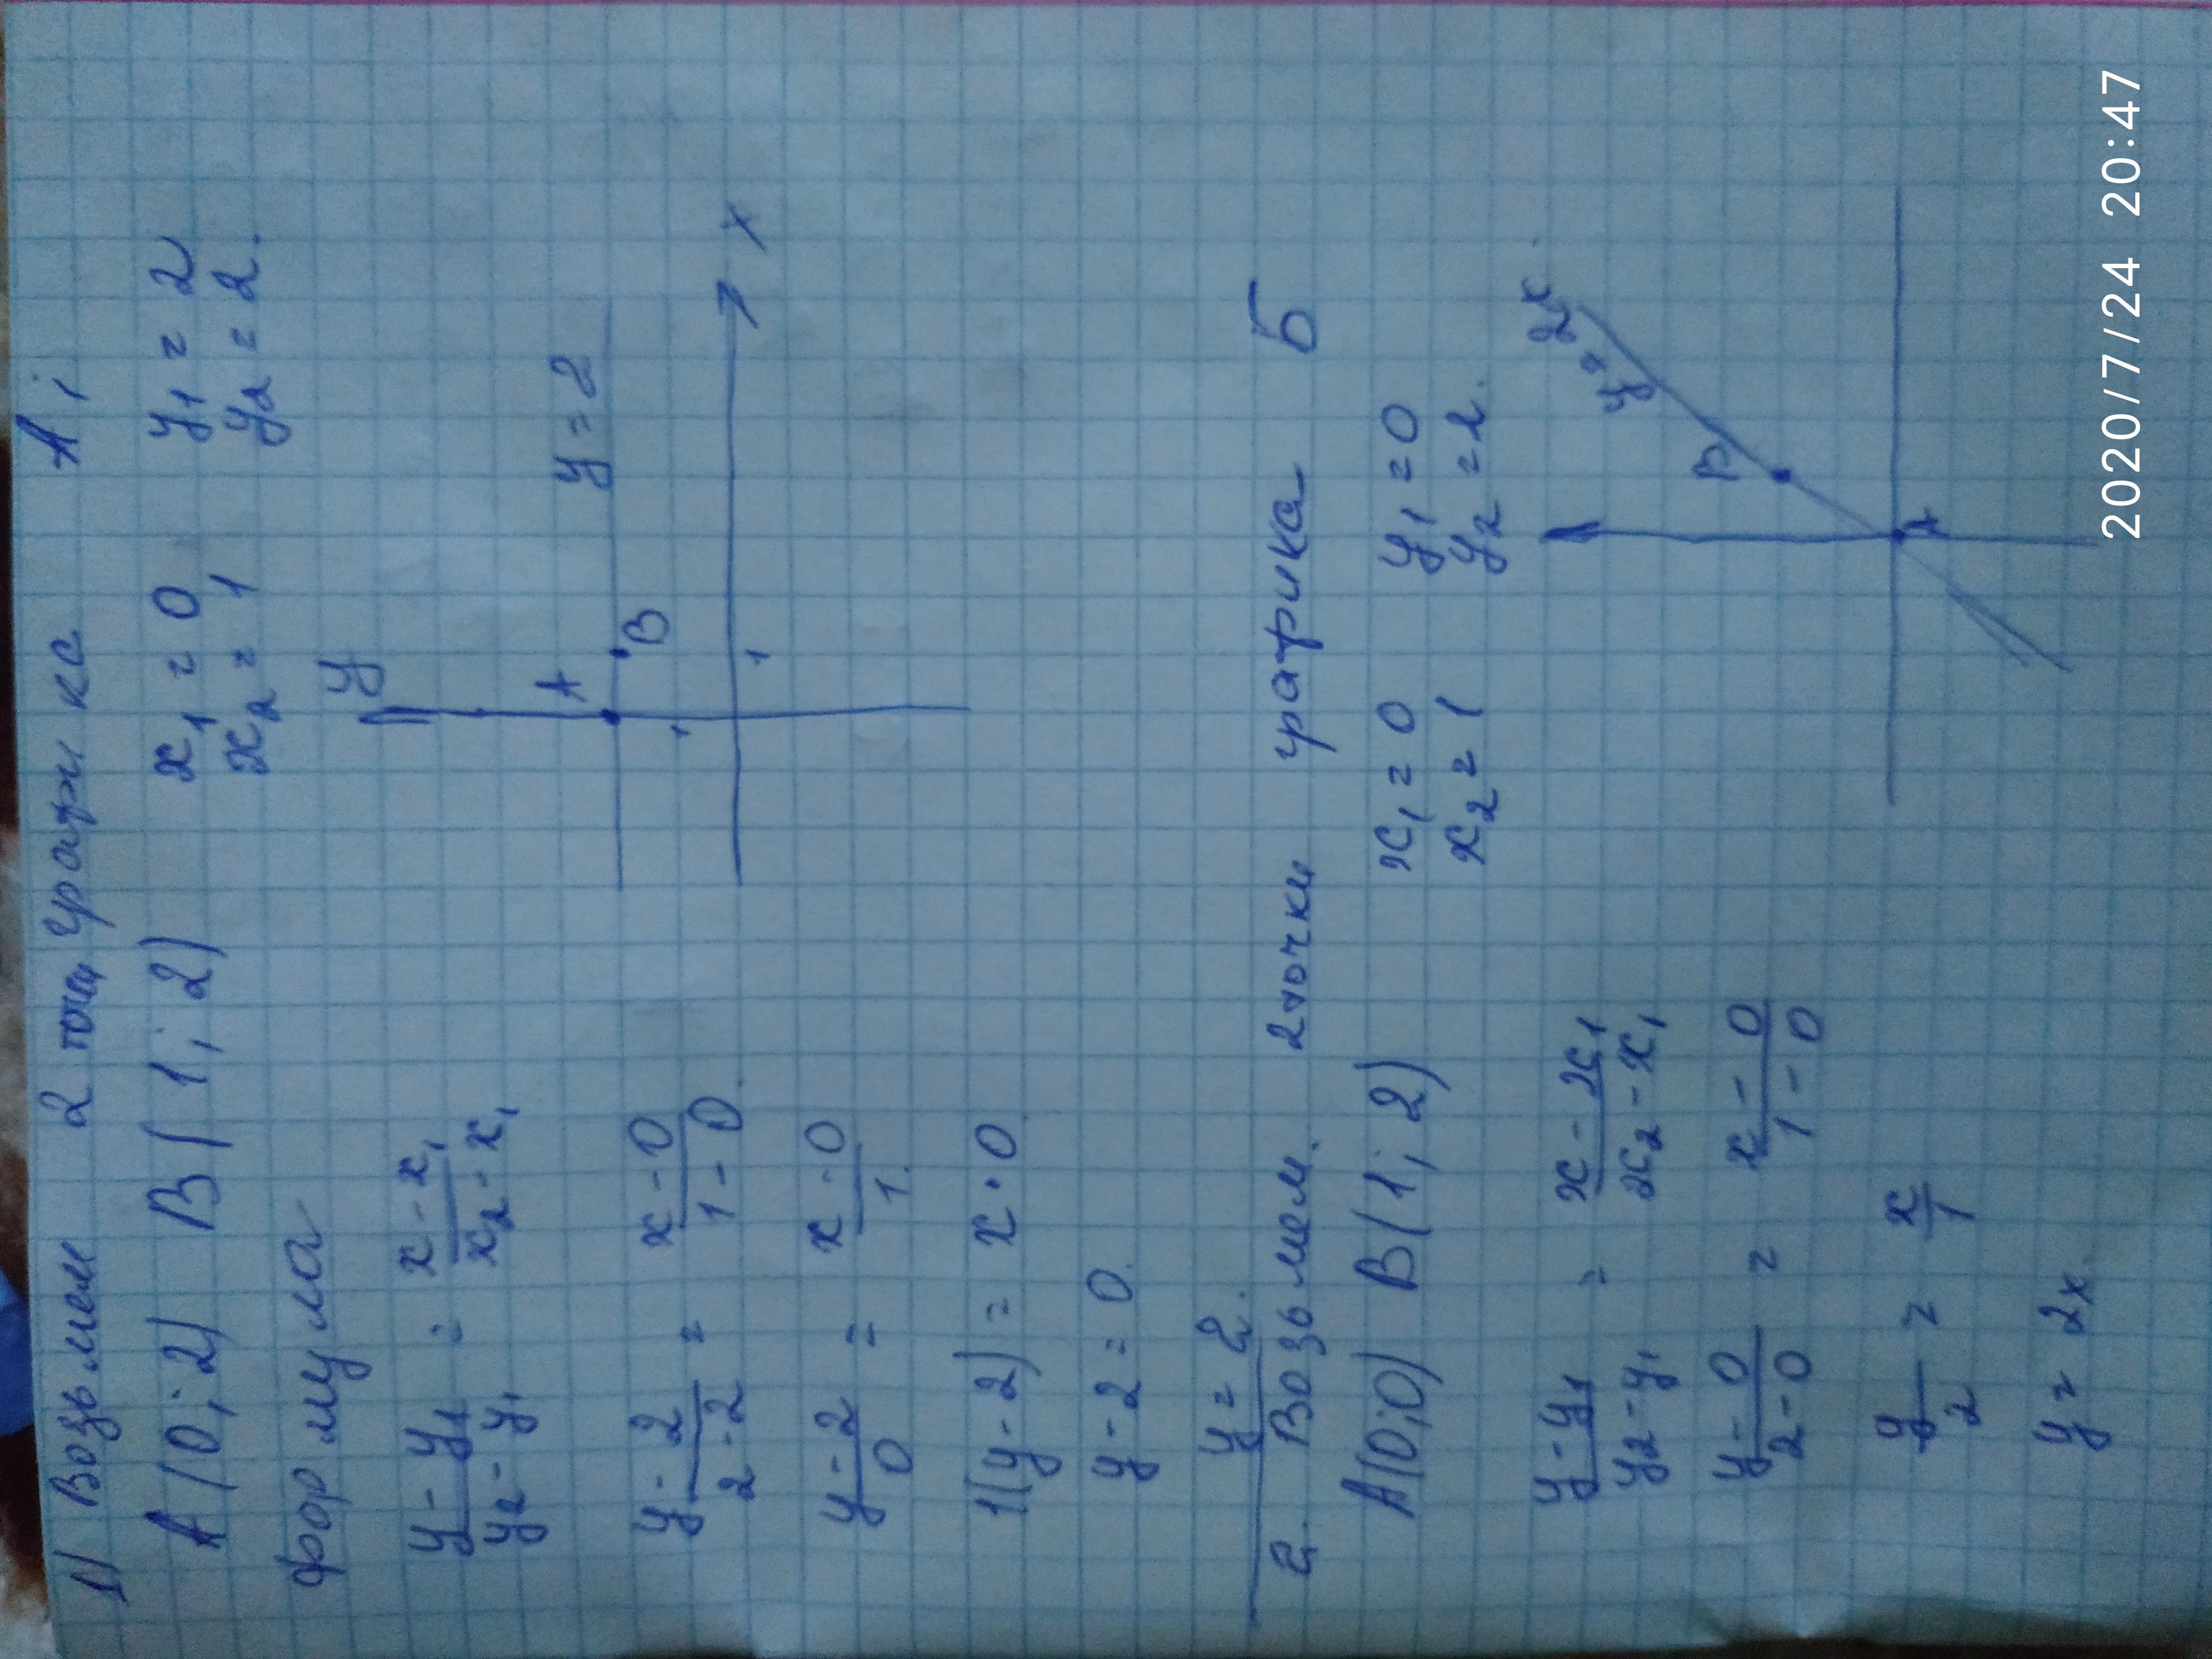 1) Возьмем 2 точки графика А;
A (0; 2) B (1; 2) x₁ = 0 y₁ = 2
x₂ = 1 y₂ = 2.
формула
y
(y - y₁)/(y₂ - y₁) = (x - x₁)/(x₂ - x₁)
A
B
y = 2
1
1
x
(y - 2)/(2 - 2) = (x - 0)/(1 - 0).
(y - 2)/0 = (x - 0)/1.
1(y - 2) = x · 0
y - 2 = 0.
y = 2.
2. Возьмем. 2 точки графика Б
A(0;0) B(1; 2) x₁ = 0 y₁ = 0
x₂ = 1 y₂ = 2.
(y - y₁)/(y₂ - y₁) = (x - x₁)/(x₂ - x₁)
y = 2x.
B
A
(y - 0)/(2 - 0) = (x - 0)/(1 - 0)
y/2 = x/1
y = 2x.
2020/7/24 20:47